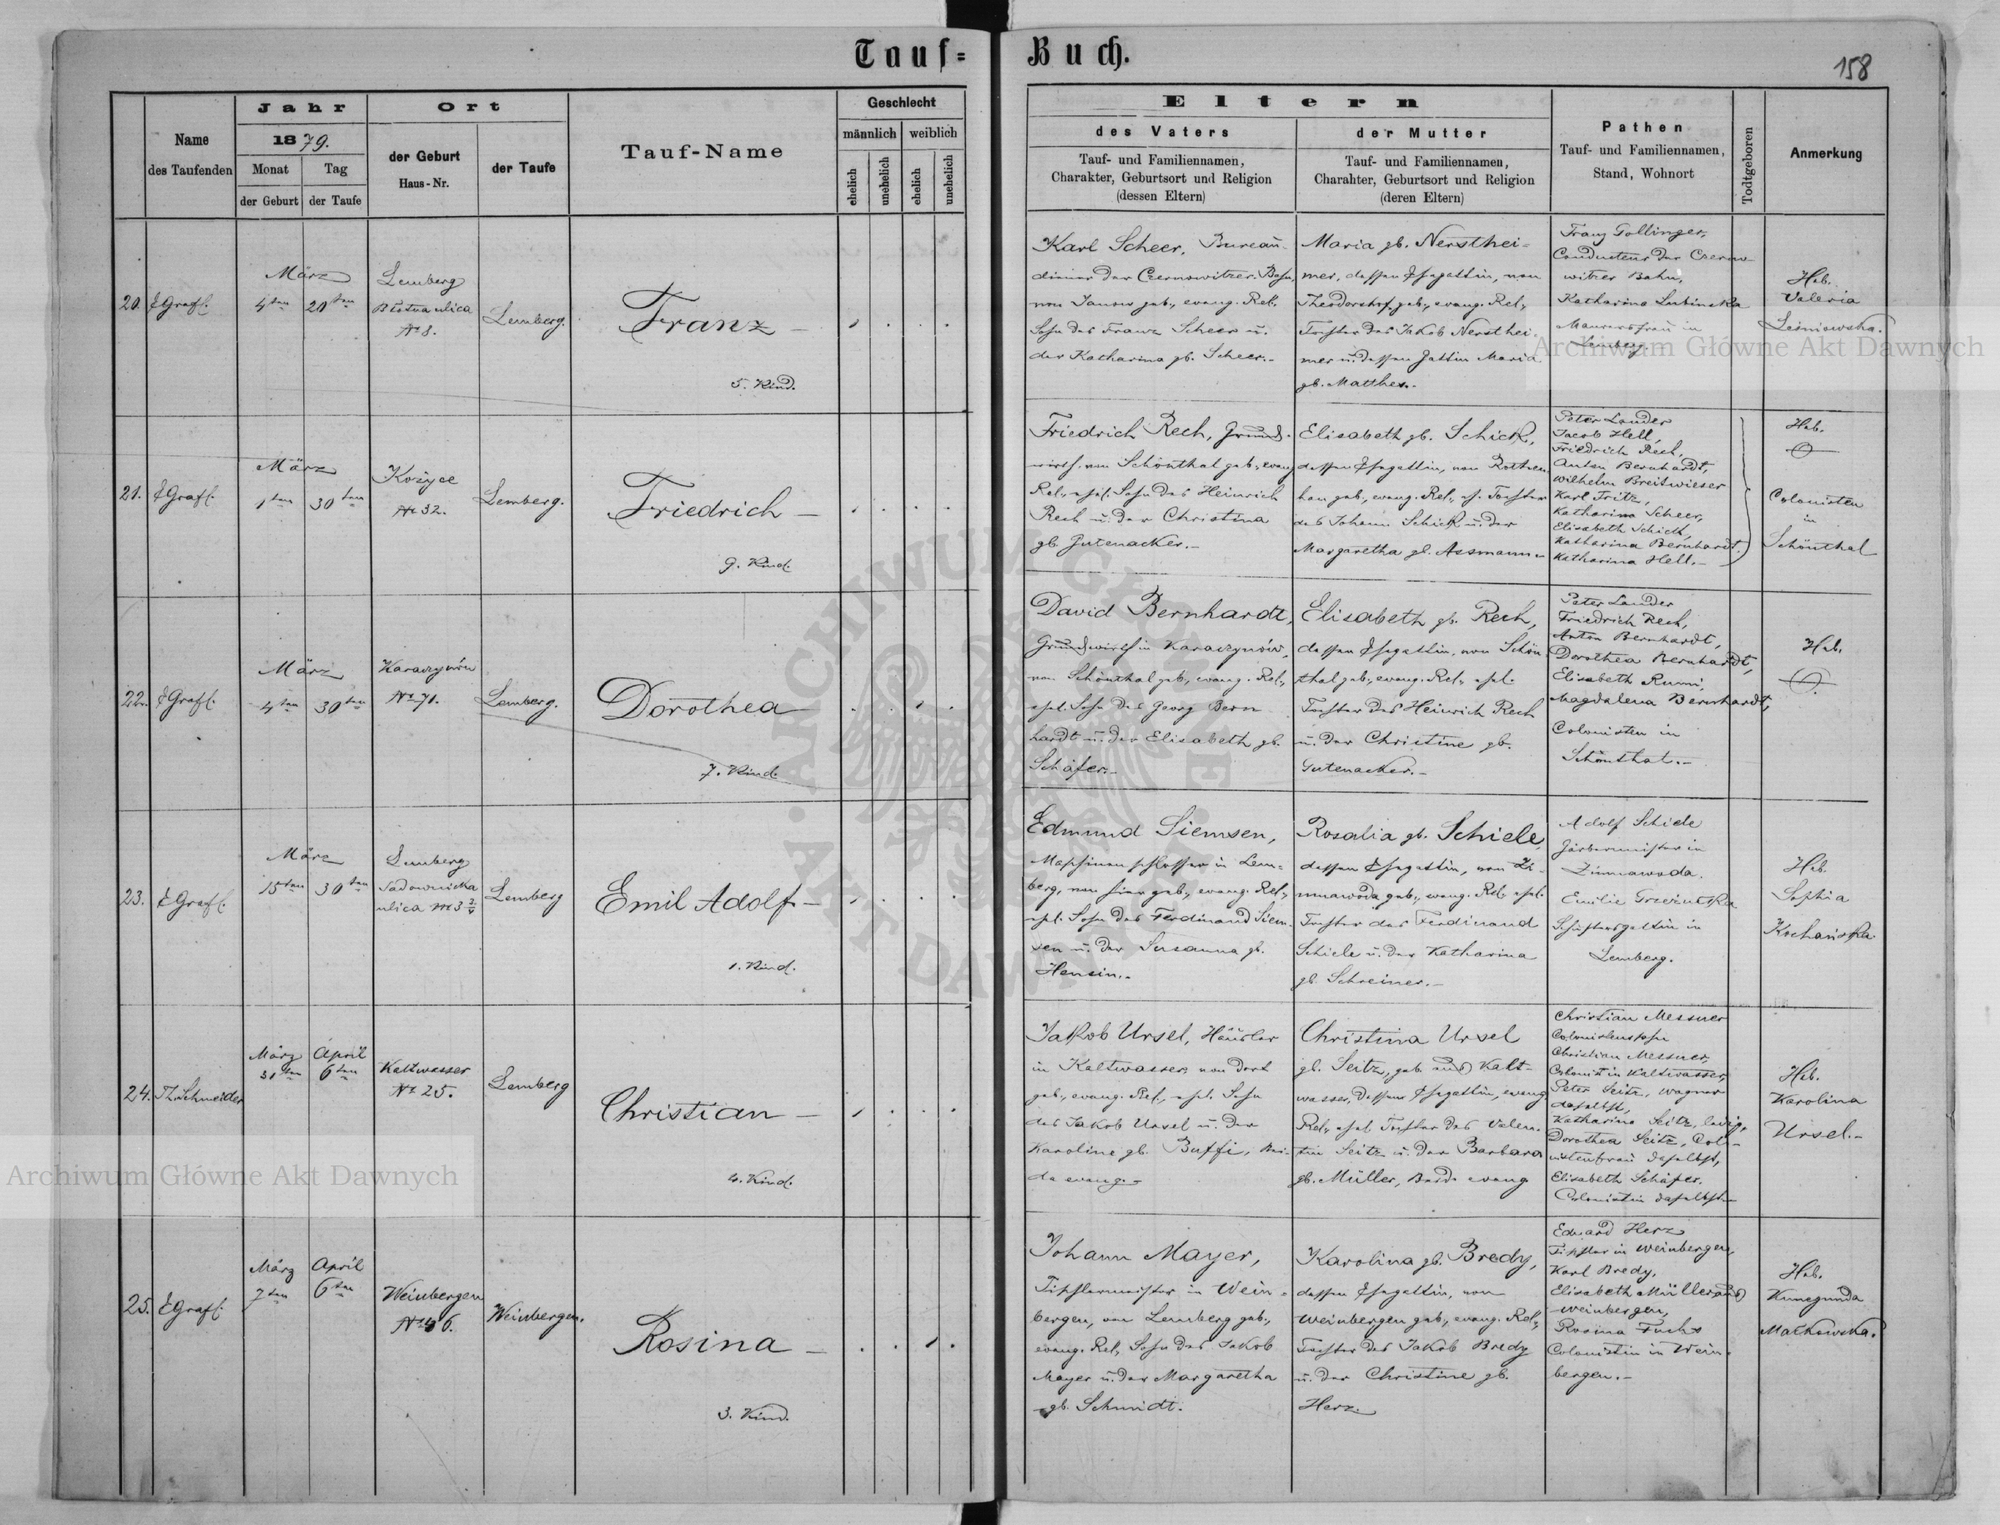 Tauf-Buch.
158
Name
des Taufenden
Jahr
1879.
Monat
Tag
der Geburt
der Taufe
Ort
der Geburt
Haus-Nr.
der Taufe
Tauf-Name
Geschlecht
männlich
weiblich
ehelich
unehelich
ehelich
unehelich
Eltern
des Vaters
Tauf- und Familiennamen,
Charakter, Geburtsort und Religion
(dessen Eltern)
der Mutter
Tauf- und Familiennamen,
Charahter, Geburtsort und Religion
(deren Eltern)
Pathen
Tauf- und Familiennamen,
Stand, Wohnort
Todtgeboren
Anmerkung
20.
EGrafl.
März
4ten
20ten
Lemberg
Błotna ulica
No 8.
Lemberg.
Franz
5. Kind.
Karl Scheer, Bureau-
diener der Czernowitzer Bahn,
von Janow geb., evang. Rel.
Sohn des Franz Scheer u.
der Katharina gb. Scheer.
Maria gb. Nersthei-
mer, dessen Ehegattin, von
Theodorshof geb., evang. Rel.,
Tochter des Jakob Nersthei-
mer u. dessen Gattin Maria
gb. Matthes.
Franz Gollinger,
Conducteur der Czerno-
witzer Bahn,
Katharina Lubinska
Maurersfrau in
Lemberg
Heb.
Valeria
Leśniowska.
21.
EGrafl.
März
1ten
30ten
Kożyce
No 32.
Lemberg.
Friedrich
9. Kind.
Friedrich Rech, Grund-
wirth, von Schönthal geb., evang.
Rel., ehel. Sohn des Heinrich
Rech u. der Christina
gb. Gutenacker.
Elisabeth gb. Schick,
dessen Ehegattin, von Rottenhan
geb., evang. Rel., eh. Tochter
des Johann Schick u. der
Margaretha gb. Assmann
Peter Lander
Jacob Hell,
Friedrich Rech,
Anton Bernhardt,
Wilhelm Breitwieser
Karl Fritz,
Katharina Scheer,
Elisabeth Schick,
Katharina Bernhardt,
Katharina Hell.
Heb.
Colonisten
in
Schönthal
22.
EGrafl.
März
4ten
30ten
Karaczynów
No 71.
Lemberg.
Dorothea
7. Kind.
David Bernhardt,
Grundwirth in Karaczynów,
von Schönthal geb., evang. Rel.,
ehel. Sohn des Georg Bern
hardt u. der Elisabeth gb.
Schäfer.
Elisabeth gb. Rech,
dessen Ehegattin, von Schön
thal geb., evang. Rel., ehel.
Tochter des Heinrich Rech
u. der Christine gb.
Gutenacker.
Peter Lander
Friedrich Rech,
Anton Bernhardt,
Dorothea Bernhardt,
Elisabeth Rumi,
Magdalena Bernhardt,
Colonisten in
Schönthal.
Heb.
23.
EGrafl.
März
15ten
30ten
Lemberg
Sadownicka
ulica
Lemberg
Emil Adolf
1. Kind.
Edmund Siemsen,
Maschinenschlosser in Lem-
berg, von hier geb., evang. Rel.,
ehel. Sohn des Ferdinand Siem-
sen u. der Susanna gb.
Hensin.
Rosalia gb. Schiele,
dessen Ehegattin, von Zi-
mnawoda geb., evang. Rel. ehel.
Tochter des Ferdinand
Schiele u. der Katharina
gb. Schreiner.
Adolf Schiele
Färbermeister in
Zimnawoda.
Emilie
Schustersgattin in
Lemberg.
Heb.
Sophia
Kochańska
24.
Th. Schneider
März
31ten
April
6ten
Kaltwasser
No 25.
Lemberg
Christian
4. Kind.
Jakob Ursel, Häusler
in Kaltwasser, von dort
geb., evang. Rel., ehel. Sohn
des Jakob Ursel u. der
Karoline gb. Buffi, bei-
de evang.
Christina Ursel
gb. Seitz, geb. aus Kalt-
wasser, dessen Ehegattin, evang.
Rel., ehel. Tochter des Valen-
tin Seitz u. der Barbara
gb. Müller, Beide evang
Christian Messner
Colonistensohn
Christian Messner,
Colonist in Kaltwasser,
Peter Seitz, Wagner
daselbst,
Katharina Seitz, ledig,
Dorothea Seitz, Colo-
nistenfrau daselbst,
Elisabeth Schäfer,
Colonistin daselbst
Heb.
Karolina
Ursel.
25.
EGrafl.
März
7ten
April
6ten
Weinbergen
No 46.
Weinbergen.
Rosina
3. Kind.
Johann Mayer,
Tischlermeister in Wein-
bergen, von Lemberg geb.,
evang. Rel., Sohn des Jakob
Mayer u. der Margaretha
gb. Schmidt.
Karolina gb. Bredy,
dessen Ehegattin, von
Weinbergen geb., evang. Rel.,
Tochter des Jakob Bredy
u. der Christine gb.
Herz.
Eduard Herz
Tischler in Weinbergen,
Karl Bredy,
Elisabeth Müller aus
Weinbergen,
Rosina Fuchs
Colonistin in Wein-
bergen.
Heb.
Kunegunda
Małkowska.
Archiwum Główne Akt Dawnych
Archiwum Główne Akt Dawnych
ARCHIWUM GŁÓWNE AKT DAWNYCH